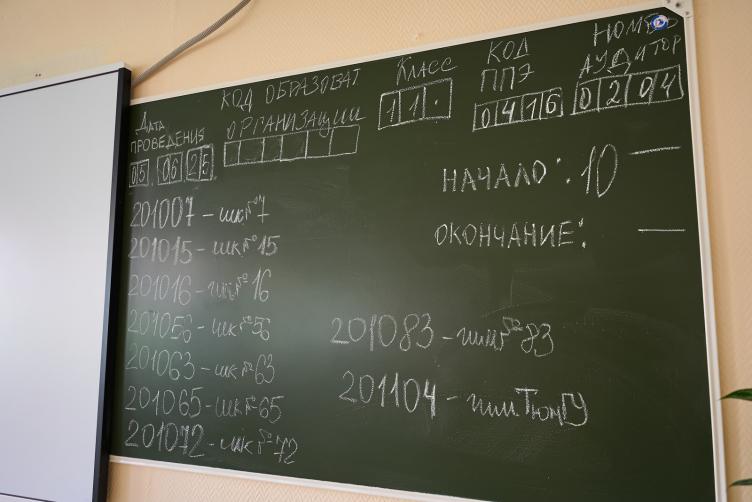 Дата
ПРОВЕДЕНИЯ
05. 06 25.
КОД ОБРАЗОВАТ
ОРГАНИЗАЦИИ
Класс
11.
КОД
ППЭ
0416
НОМЕР
АУДИТОР
0204
НАЧАЛО: 10 —
ОКОНЧАНИЕ: —
201007 – шк№7
201015 – шк№15
201016 – шк№16
201056 – шк№56
201063 – шк№63
201065 – шк№65
201072 – шк№72
201083 – гим№83
201104 – гим.ТюмГУ